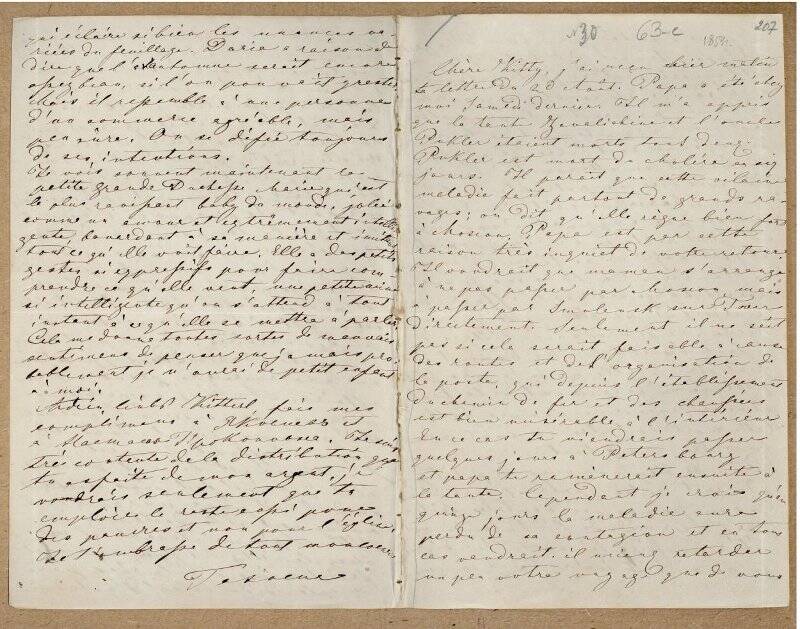 qui éclaire si bien les nuances va-
riées du feuillage. Daria a raison de
dire que l'Automne serait encore
assez beau, si l'on pouvait
Mais il ressemble à une personne
d'un commerce agréable, mais
peu sûre. On se défie toujours
de ses intentions.
Je vois souvent maintenant la
petite grande Duchesse Marie qui est
le plus ravissant baby du monde, jolie
comme un amour et extrêmement intelli
gente, à sa manière et imitant
tout ce qu'elle voit faire. Elle a des petits
gestes si expressifs pour faire com
prendre ce qu'elle veut, une petite
si intelligente qu'on s'attend à tout
instant à ce qu'elle se mettra à parler
Cela me donne toutes sortes de mauvais
sentimens de penser que jamais pro
bablement je n'aurai de petit enfant
à moi.
Adieu, liebs Kitterl fais mes
complimens à et
à Je suis
très contente de la distribution que
tu as faite de mon argent, je
voudrais seulement que tu
employes le reste aussi pour
des pauvres et non pour l'église.
Je t'embrasse de tout mon coeur

N30 63-c 1854 207
Chère Kitty, j'ai reçu hier matin
ta lettre du 20 Août. Papa a été chez
moi Samedi dernier. Il m'a appris
que la tante et l'oncle
Pukler étaient morts tout deux.
Pukler est mort de choléra en six
jours. Il parait que cette vilaine
maladie fait partout de grands ra-
vages; on dit qu'elle règne bien fort
à Moscou. Papa est par cette
raison très inquiet de votre retour.
Il voudrait que maman s'arrange
à ne pas passer par Moscou mais
à passer par Smolensk
directement. Seulement il ne sait
pas si cela serait faisable à cause
des routes et de l'organisation de
la poste, qui depuis l'établissement
du chemin de fer et des chaussées
est bien misérable à l'intérieur
En ce cas tu viendrais passer
quelques jours à Petersbourg
et papa te ramènerait ensuite à
la tante. Cependant je crois qu'en
quinze jours la maladie aura
perdu de sa contagion et en tous
cas vaudrait il mieux retarder
un peu votre voyage que de vous